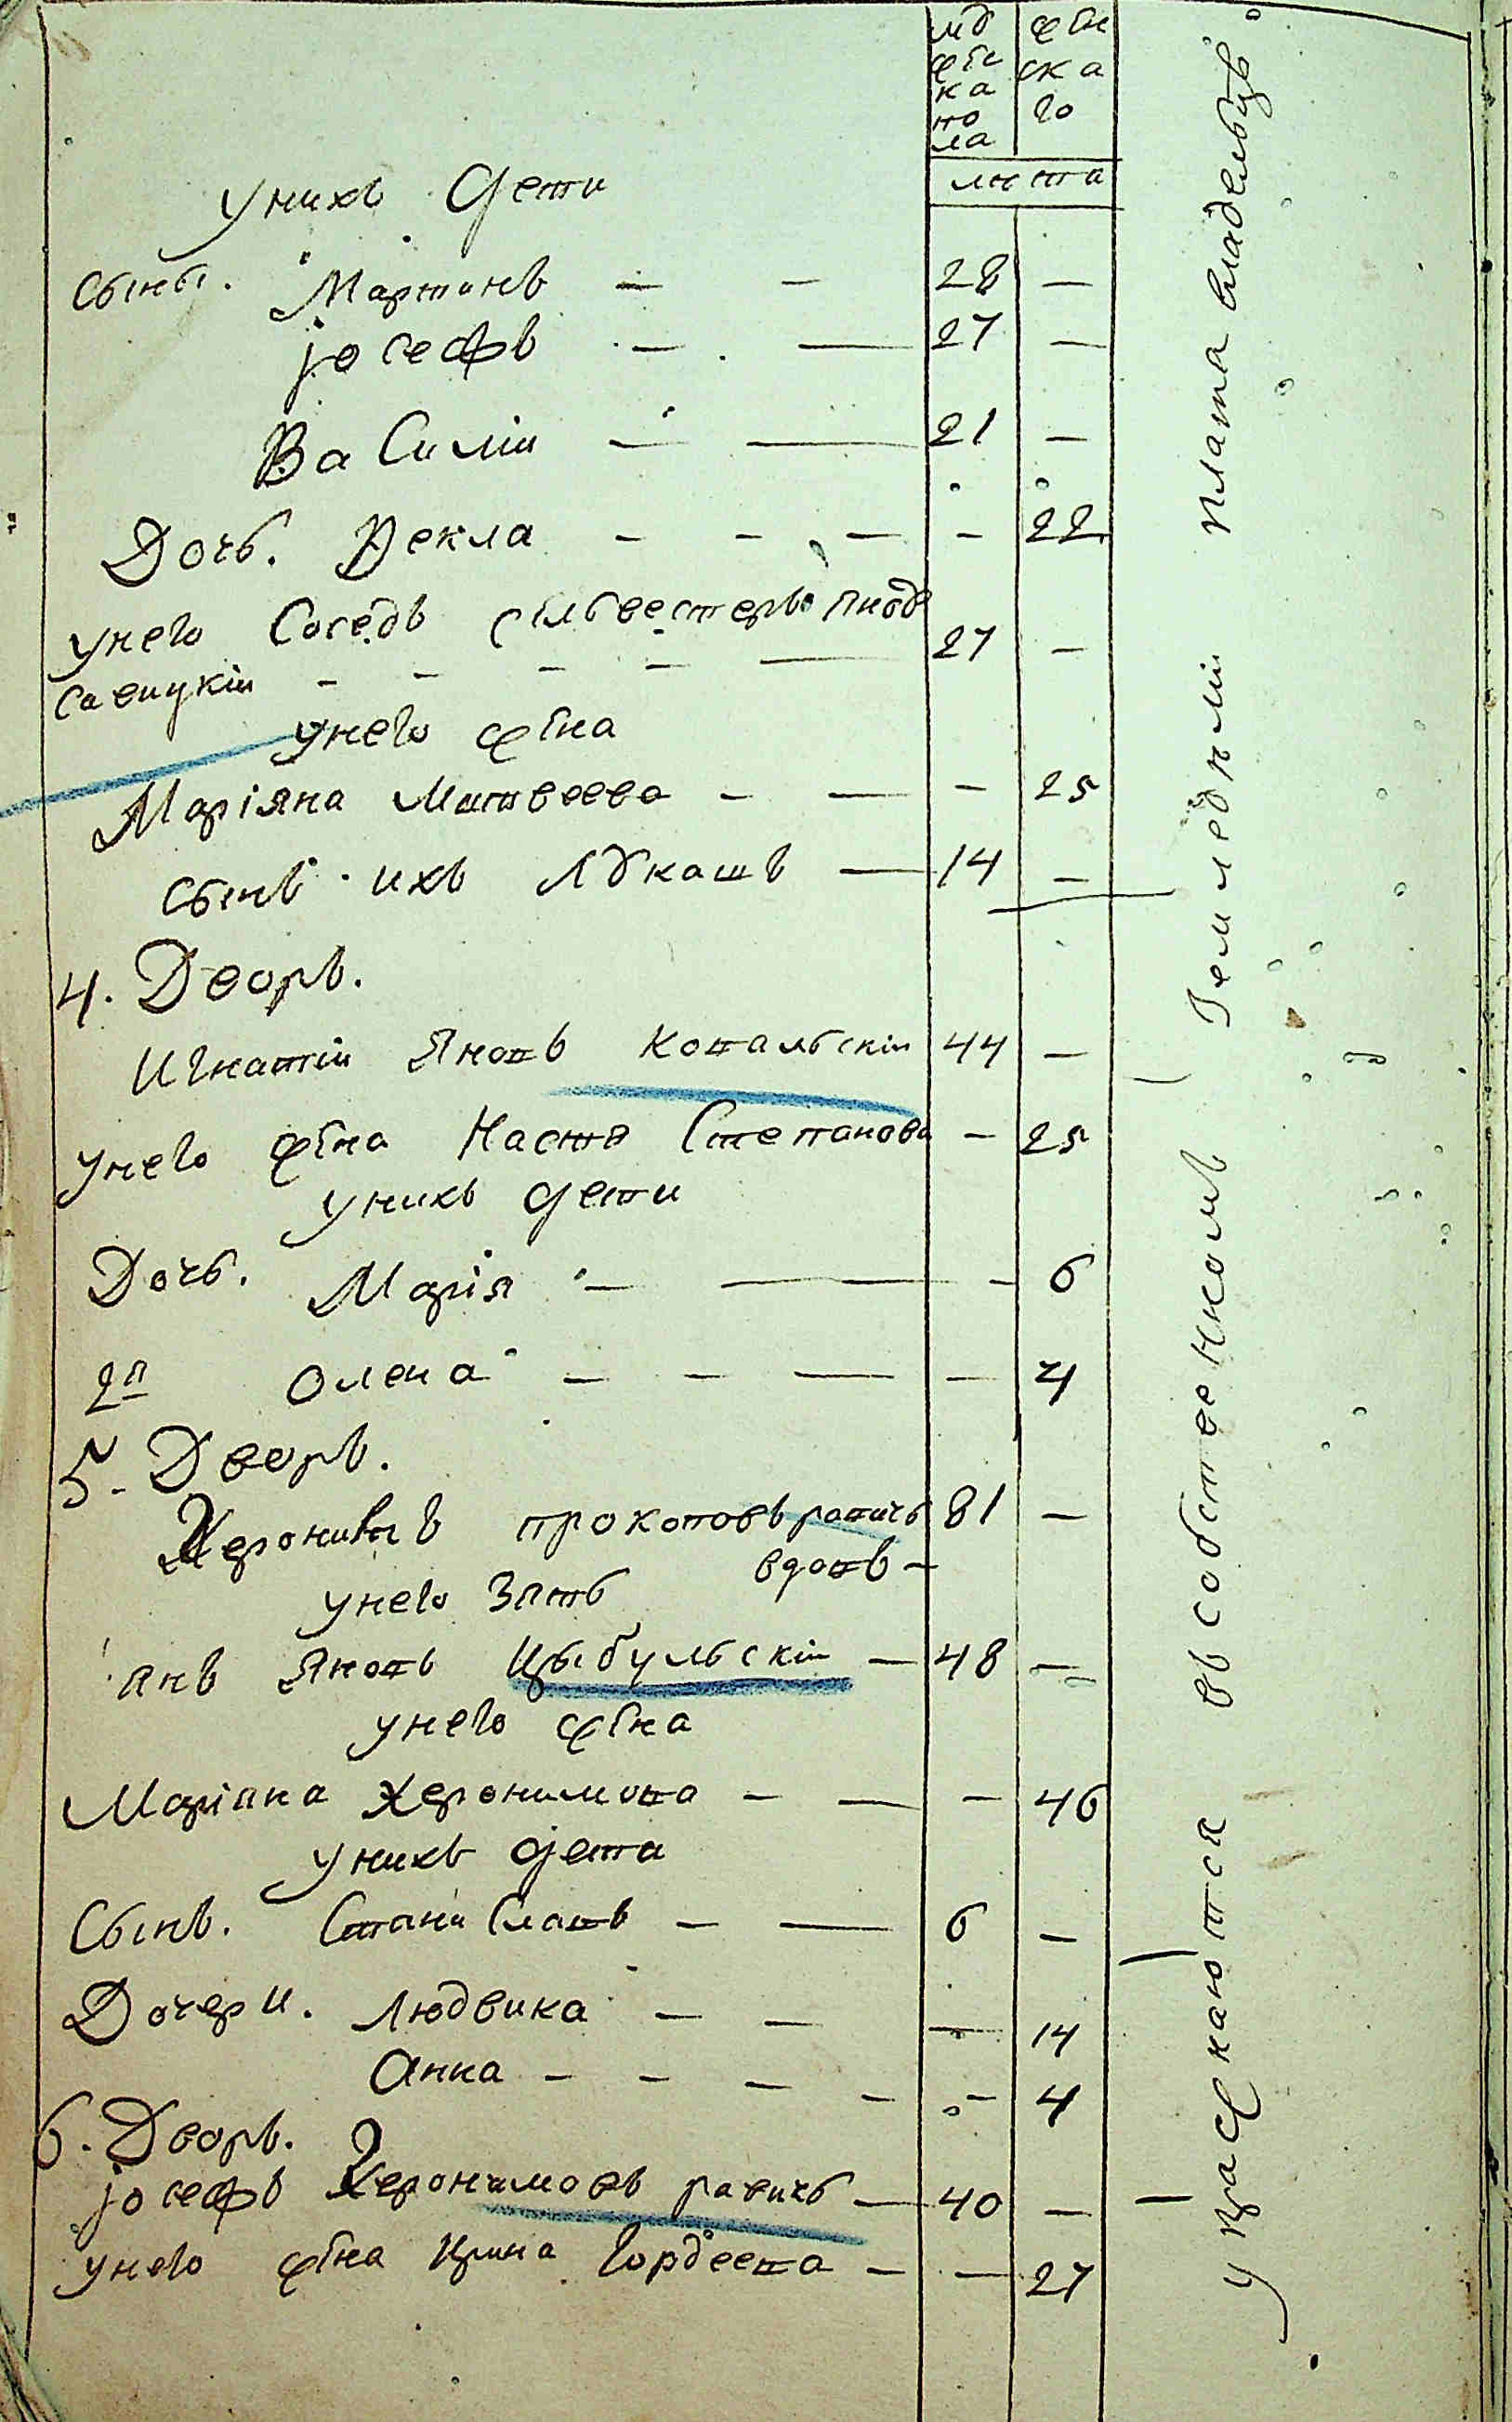 мꙋ жес ка по ла
жен ска го
лета
у нихъ дети
сыны. Мартинъ — — 28 —
іосефъ — — 27 —
Василій — — 21 —
Дочь. Векла — — — — 22
унего Соседъ Сильвестеръ
Савицкій — — — — 27 —
унего жена
Маріяна Матвеева — — — 25
Сынъ ихъ Лꙋкашъ — 14 —
4. Дворъ.
Игнатій Яновъ Ковальскій 44 —
унего жена Настя Степанова — 25
унихъ дети
Дочь. Марія — — — 6
2я Олена — — — — 4
5. Дворъ.
Херонимъ прокоповъ равичь 81 —
вдовъ —
унего Зять
янъ Яновъ Цыбульскій — 48 —
унего жена
Маріяна Херонимова — — — 46
унихъ дети
Сынъ. Станиславъ — — 6 —
Дочери. Людвика — — — 14
Анна — — — — — 4
6. Дворъ.
іосефъ Херонимовъ равичь — 40 —
унего жена Ирина Гордеева — — 27
упражнаются въ собственномъ Земледеліи плата владельцꙋ